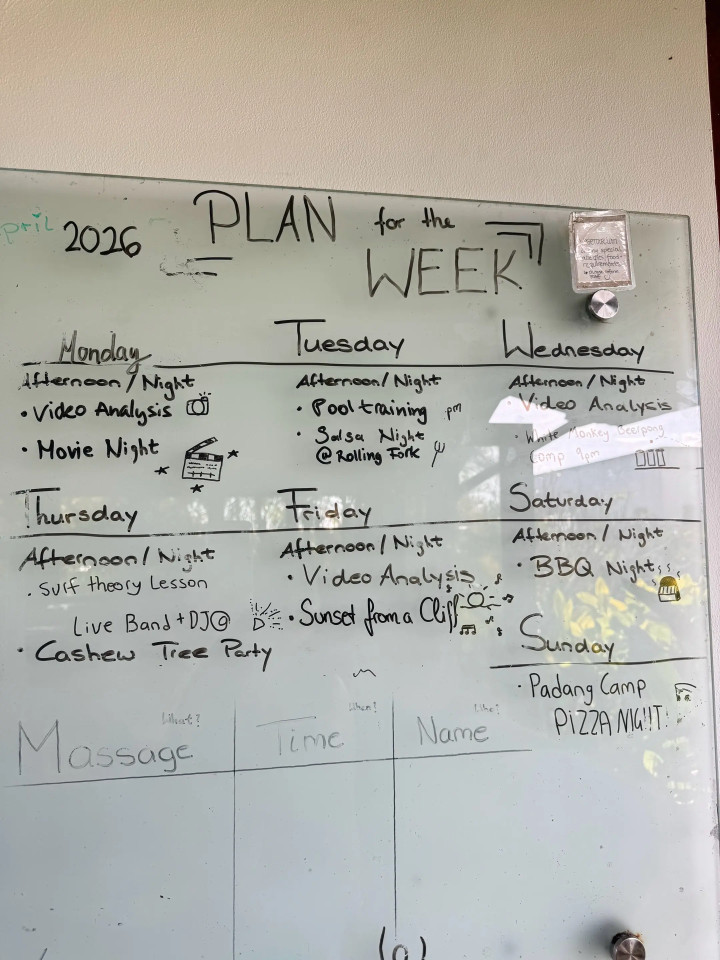 April 2026
PLAN for the
WEEK
Monday
Afternoon / Night
• Video Analysis
• Movie Night
Tuesday
Afternoon / Night
• Pool training pm
• Salsa Night
@ Rolling Fork
Wednesday
Afternoon / Night
• Video Analysis
• White Monkey Beerpong
Comp 9pm
Thursday
Afternoon / Night
• Surf theory Lesson
Live Band + DJ @
• Cashew Tree Party
Friday
Afternoon / Night
• Video Analysis
• Sunset from a Cliff
Saturday
Afternoon / Night
• BBQ Night
Sunday
• Padang Camp
PIZZA NIGHT!
What? When? Who?
Massage Time Name